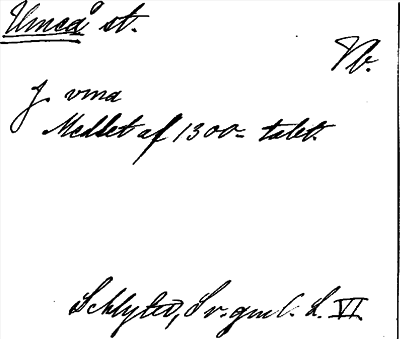 Umeå st.
Vb.
J vma
Medlet af 1300-talet.
Schlyter, Sv. gml. L. VI.